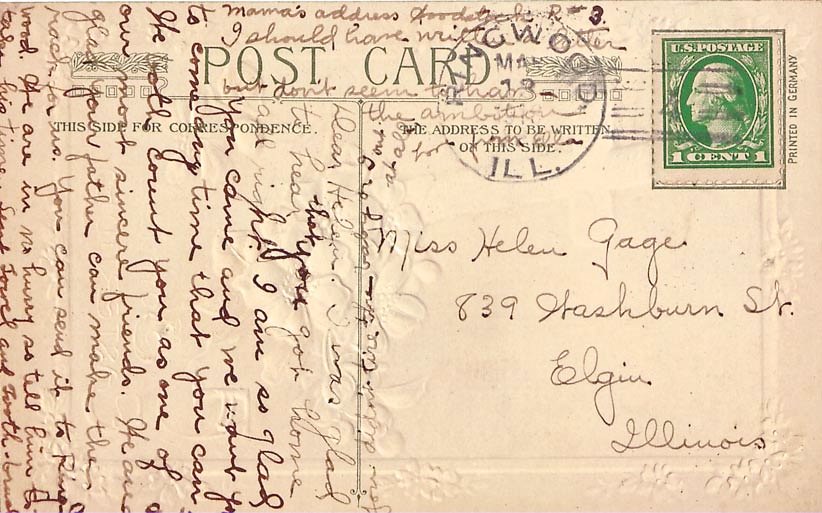 Mama's address Woodstock R # 3.
I should have written a letter
but don't seem to have
the ambition
POST CARD
THIS SIDE FOR CORRESPONDENCE.
THE ADDRESS TO BE WRITTEN
ON THIS SIDE.
RINGWOOD
13
ILL.
U.S. POSTAGE
1 CENT 1
PRINTED IN GERMANY
Miss Helen Gage
839 Washburn St.
Elgin
Illinois
Dear Helen: I was glad
to hear that you got home
all right. I am so glad
you came and we want you
to come any time that you can.
We both count you as one of
our most sincere friends. We are
glad your father can make the
rack for us. You can send it to Ring-
wood. We are in no hurry so tell him to
take his time. Sent Towel and Tooth-brush